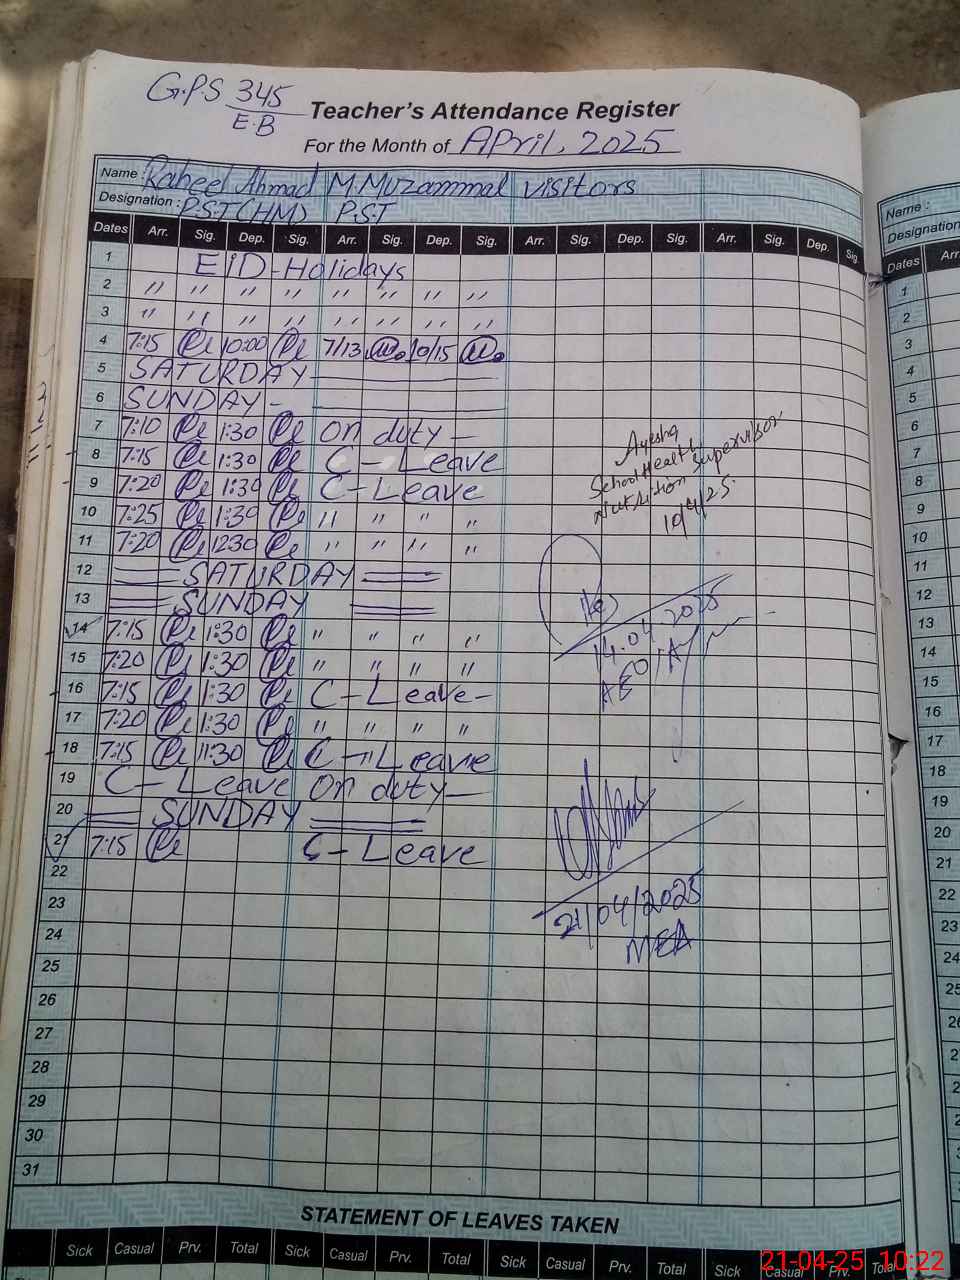 G.P.S 345
E.B
Teacher's Attendance Register
For the Month of April, 2025
Name : Raheel Ahmad M.Muzammal visitors
Designation : P.S.T(HM) P.S.T
Dates Arr. Sig. Dep. Sig. Arr. Sig. Dep. Sig. Arr. Sig. Dep. Sig. Arr. Sig. Dep. Sig.
1 EID-Holidays
2 " " " " " " " "
3 " " " " " " " "
4 7:15 10:00 7/13 10/15
5 SATURDAY
6 SUNDAY-
7 7:10 1:30 On duty —
8 7:15 1:30 C-Leave
9 7:20 1:30 C-Leave
10 7:25 1:30 " " " "
11 7:20 1230 " " " "
12 SATURDAY
13 SUNDAY
14 7:15 1:30 " " " "
15 7:20 1:30 " " " "
16 7:15 1:30 C-Leave-
17 7:20 1:30 " " " "
18 7:15 11:30 C-Leave
19 C-Leave On duty—
20 SUNDAY
21 7:15 C-Leave
22
23
24
25
26
27
28
29
30
31
Ayesha
School Health
Nutrition Supervisor
10/4/25
14.04.2025
AEO
21/04/2025
MEA
STATEMENT OF LEAVES TAKEN
Sick Casual Prv. Total Sick Casual Prv. Total Sick Casual Prv. Total Sick Casual Prv. Total
Name :
Designation
Dates Arr
1
2
3
4
5
6
7
8
9
10
11
12
13
14
15
16
17
18
19
20
21
22
23
24
25
26
21-04-25 10:22